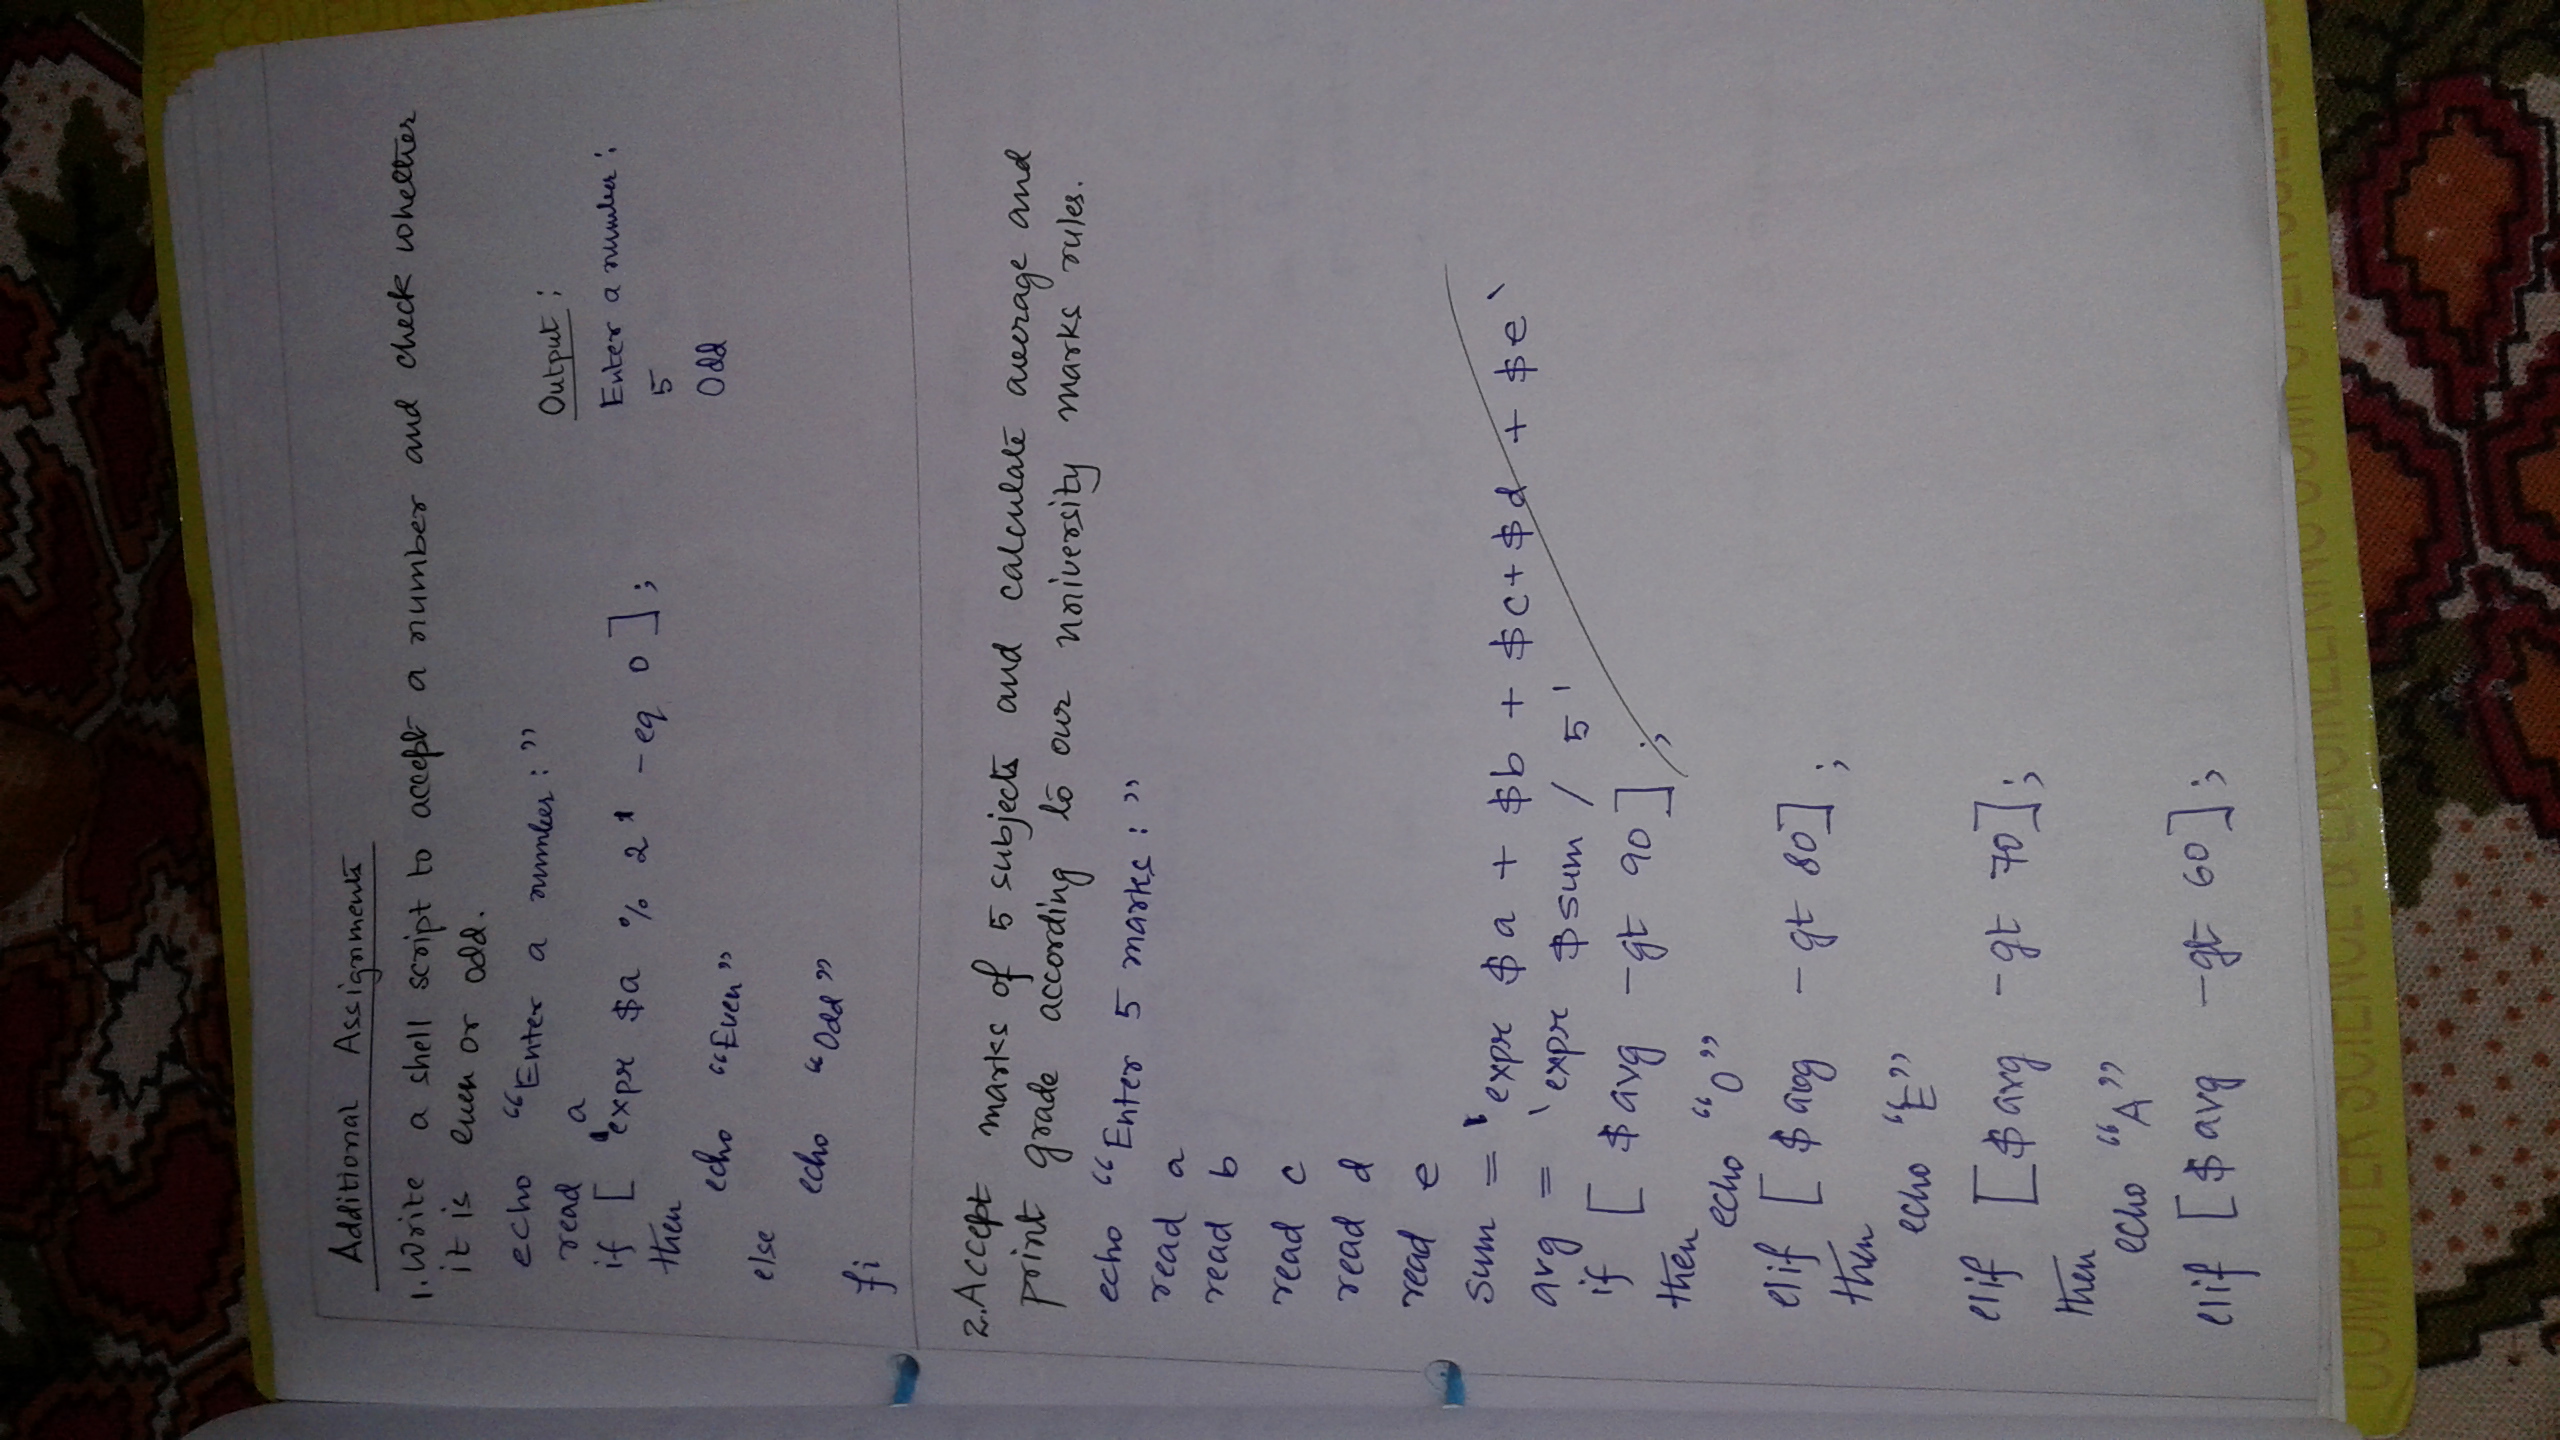 Additional Assignments
1. Write a shell script to accept a number and check whether
it is even or odd.
echo "Enter a number : "
read a
if [ `expr $a % 2` -eq 0 ];
then
echo "Even"
else
echo "Odd"
fi
Output :
Enter a number :
5
Odd
2. Accept marks of 5 subjects and calculate average and
print grade according to our university marks rules.
echo "Enter 5 marks : "
read a
read b
read c
read d
read e
sum = `expr $a + $b + $c + $d + $e`
avg = `expr $sum / 5'
if [ $avg -gt 90 ] ;
then
echo "O"
elif [ $avg -gt 80 ] ;
then
echo "E"
elif [ $avg -gt 70 ];
then
echo "A"
elif [ $avg -gt 60 ];
COMPUTER SCIENCE & ENGINEERING COMPUTER SCIENCE &